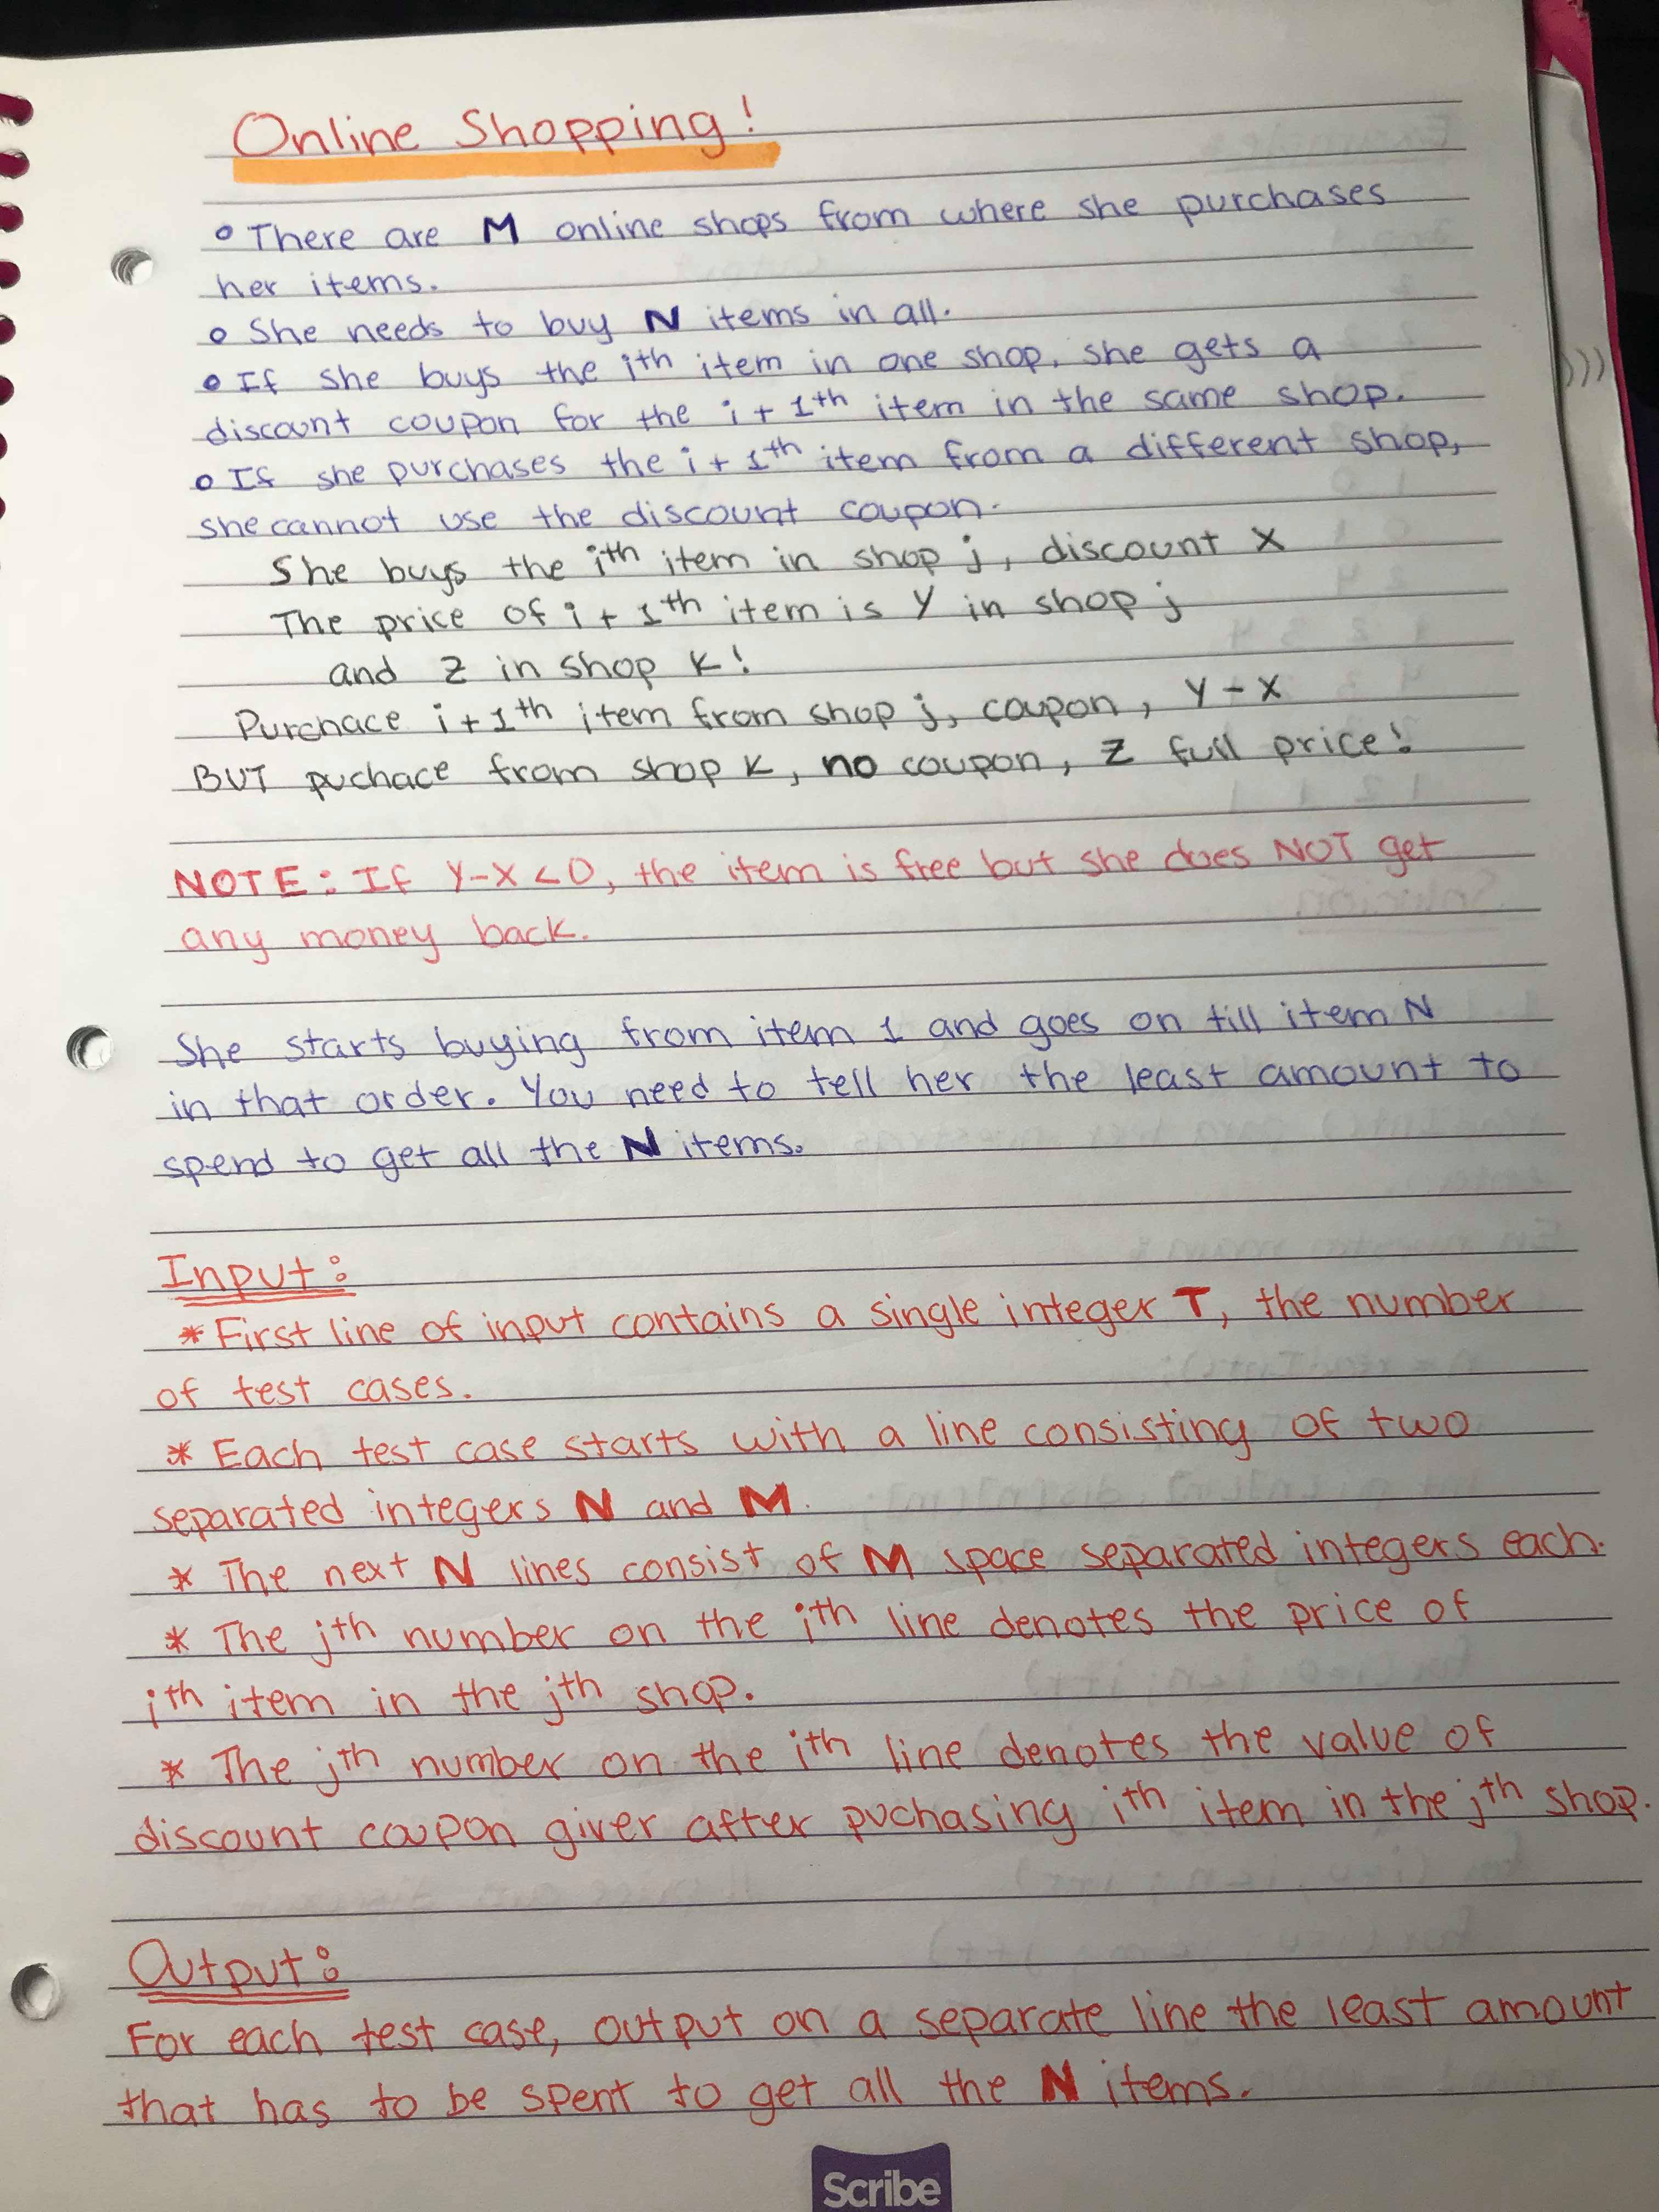 Online Shopping!
° There are M online shops from where she purchases
her items.
° She needs to buy N items in all.
° If she buys the ith item in one shop, she gets a
discount coupon for the i + 1th item in the same shop.
° If she purchases the i + 1th item from a different shop,
she cannot use the discount coupon.
She buys the ith item in shop j, discount X
The price of i + 1th item is Y in shop j
and Z in shop K!
Purchace i + 1th item from shop j, coupon, Y - X
BUT puchace from shop K, no coupon, Z full price!
NOTE: If Y-X < 0, the item is free but she does NOT get
any money back.
She starts buying from item 1 and goes on till item N
in that order. You need to tell her the least amount to
spend to get all the N items.
Input:
* First line of input contains a single integer T, the number
of test cases.
* Each test case starts with a line consisting of two
separated integers N and M.
* The next N lines consist of M space separated integers each.
* The jth number on the ith line denotes the price of
ith item in the jth shop.
* The jth number on the ith line denotes the value of
discount coupon giver after puchasing ith item in the jth shop.
Output:
For each test case, output on a separate line the least amount
that has to be spent to get all the N items.
Scribe